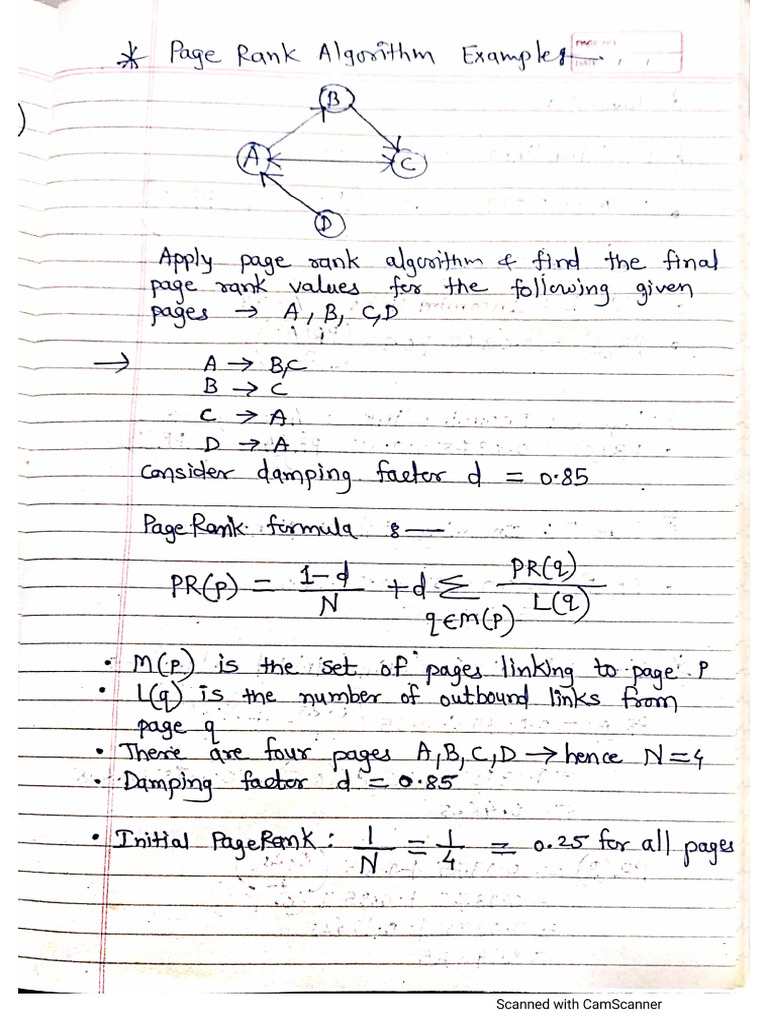 * Page Rank Algorithm Examples
PAGE NO.
DATE
B
A
C
D
Apply page rank algorithm & find the final
page rank values for the following given
pages → A, B, C, D
→ A → B, C
B → C
C → A
D → A
Consider damping factor d = 0.85
PageRank formula :—
PR(p) = 1-d/N + d Σ q∈M(p) PR(q)/L(q)
• M(p) is the set of pages linking to page P
• L(q) is the number of outbound links from
page q
• There are four pages A, B, C, D → hence N=4
• Damping factor d = 0.85
• Initial PageRank : 1/N = 1/4 = 0.25 for all pages
Scanned with CamScanner